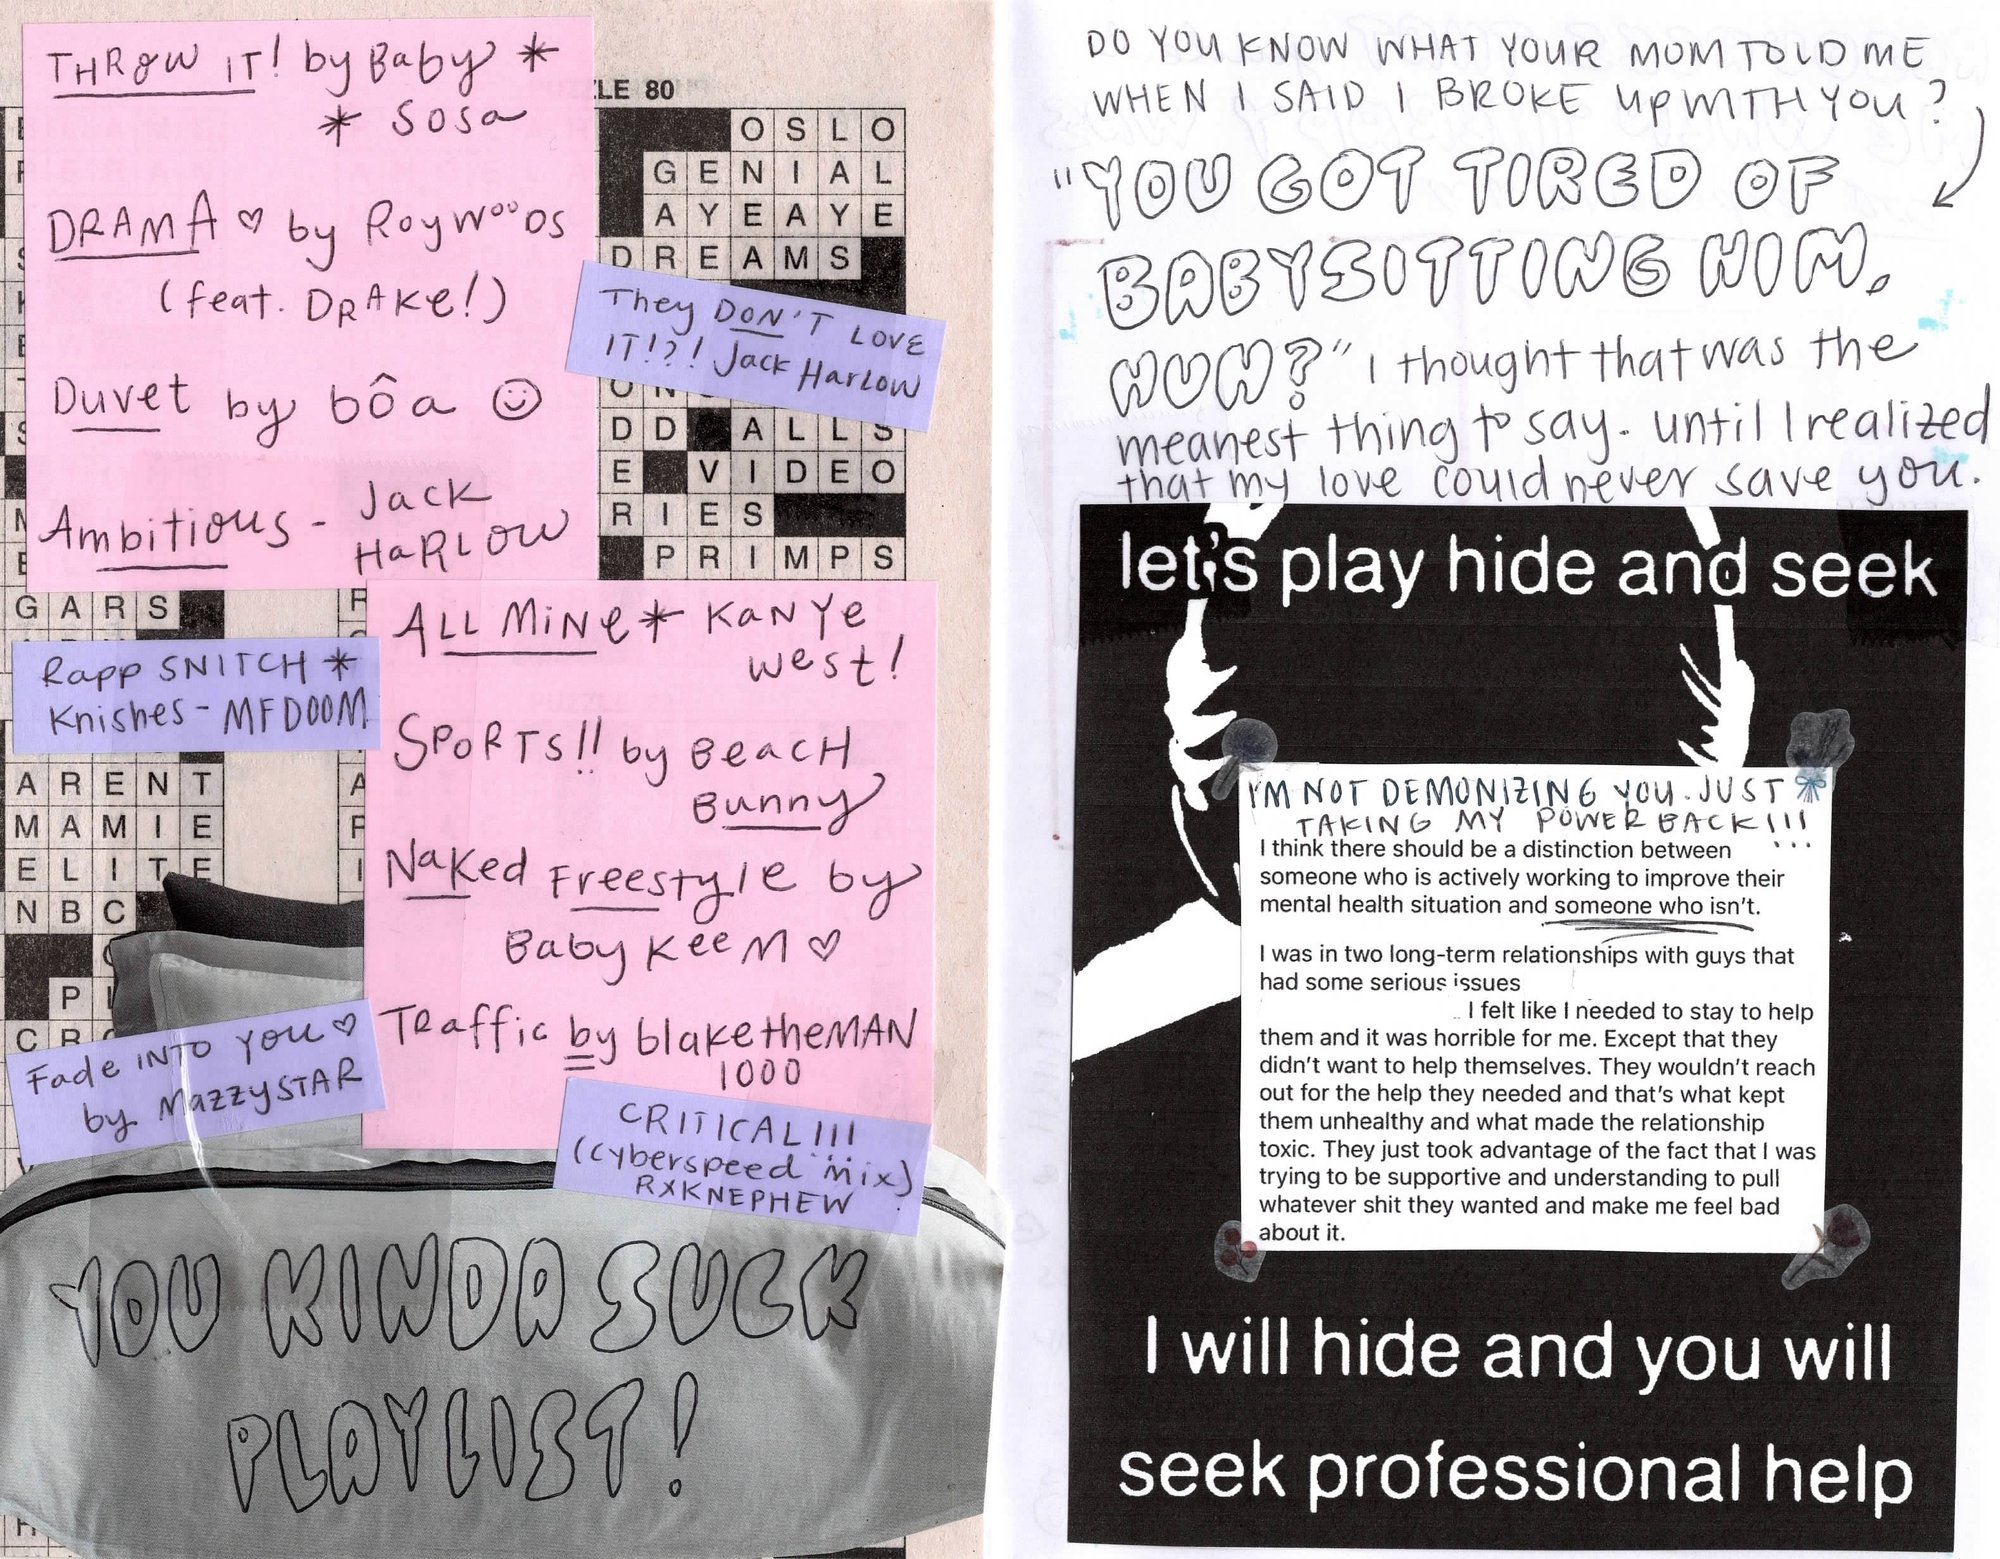 THROW IT! by Baby *
* Sosa
DRAMA ♡ by Roy woods
(feat. DRAKe!)
Duvet by bôa ☺
Ambitious - Jack
HaRLOW
They DON'T LOVE
IT!?! Jack HarLOW
ALL MiNe * KaNYe
west!
Rapp SNITCH *
Knishes - MFDOOM
SPoRTs!! by BeacH
Bunny
NaKed Freestyle by
Baby KeeM ♡
Traffic by blaketheMAN
1000
Fade INTO YOU ♡
by MazzySTAR
CRITICAL!!!
(Cyberspeed mix)
RXKNEPHEW
YOU KINDA SUCK
PLAYLIST!
LE 80
OSLO
GENIAL
AYEAYE
DREAMS
DD ALLS
E VIDEO
RIES
PRIMPS
GARS
ARENT
MAMIE
ELITE
NBC
DO YOU KNOW WHAT YOUR MOM TOLD ME
WHEN I SAID I BROKE UP WITH YOU?
"YOU GOT TIRED OF
BABYSITTING HIM,
HUH?" I thought that was the
meanest thing to say. until I realized
that my love could never save you.
let's play hide and seek
I'M NOT DEMONIZING YOU. JUST
TAKING MY POWER BACK!!!
I think there should be a distinction between
someone who is actively working to improve their
mental health situation and someone who isn't.
I was in two long-term relationships with guys that
had some serious issues
I felt like I needed to stay to help
them and it was horrible for me. Except that they
didn't want to help themselves. They wouldn't reach
out for the help they needed and that's what kept
them unhealthy and what made the relationship
toxic. They just took advantage of the fact that I was
trying to be supportive and understanding to pull
whatever shit they wanted and make me feel bad
about it.
I will hide and you will
seek professional help